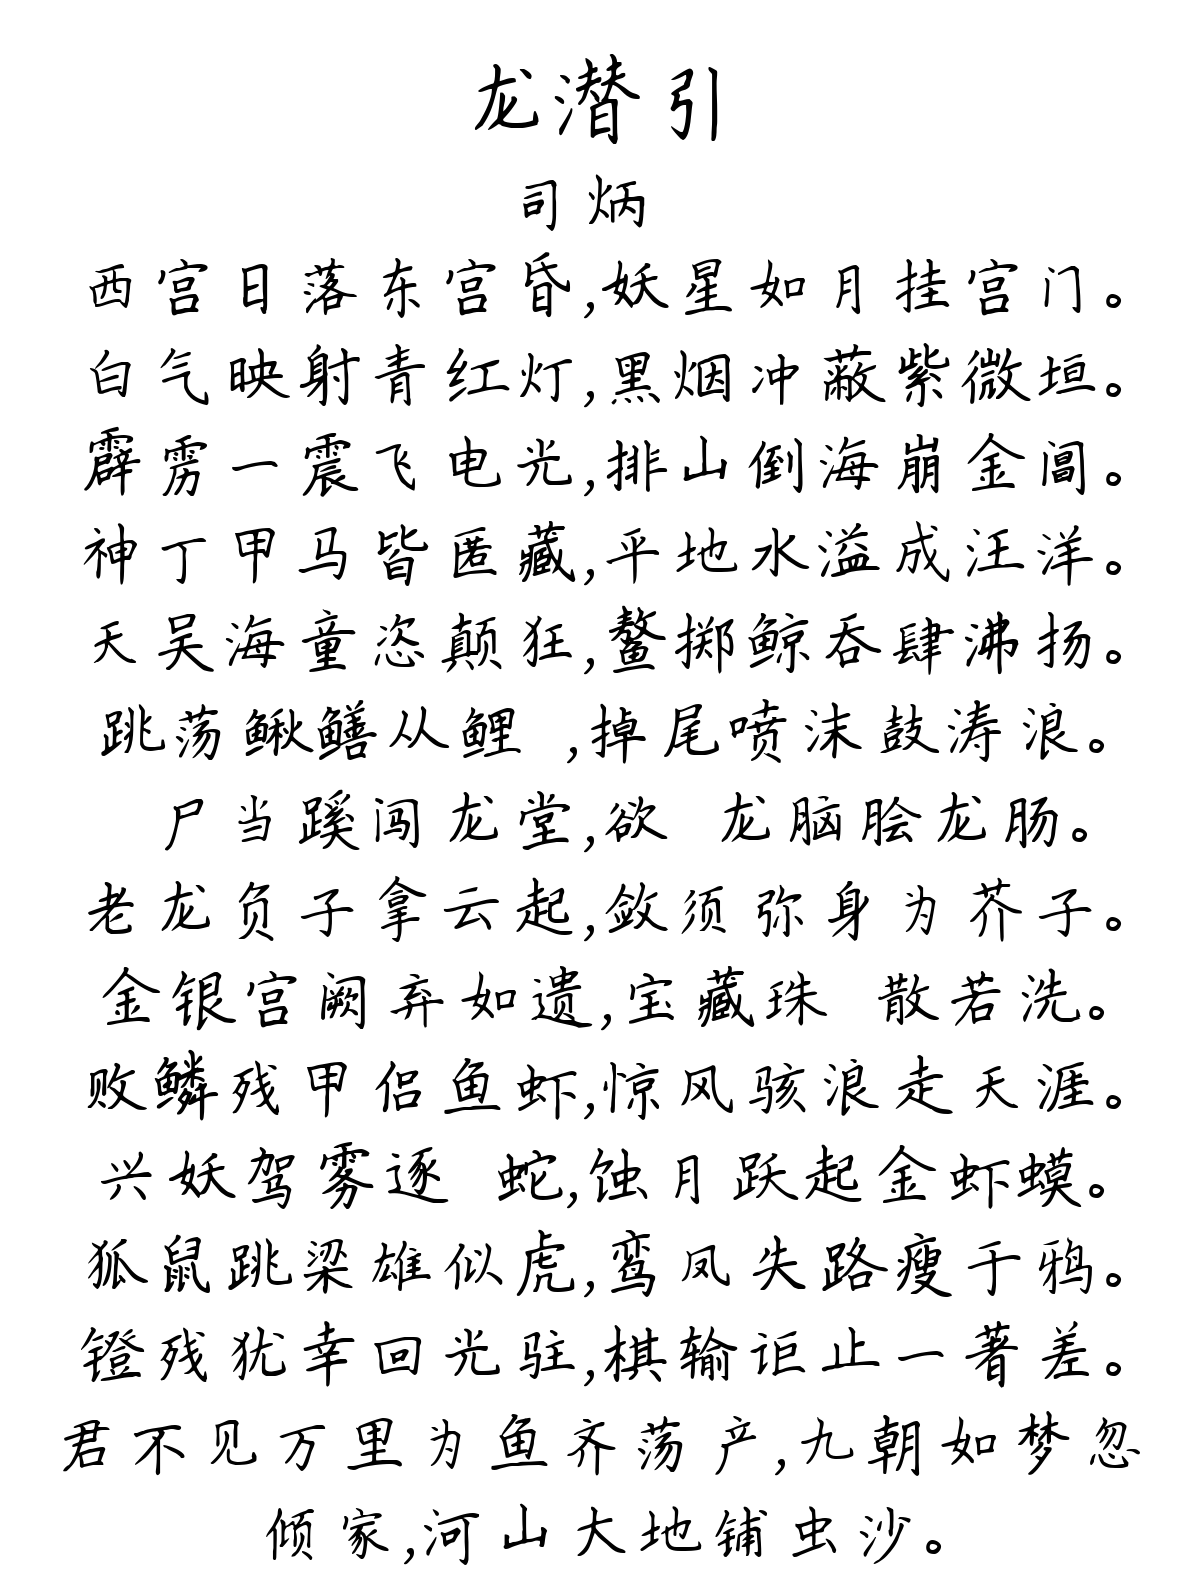 龙潜引
司炳
西宫日落东宫昏,妖星如月挂宫门。
白气映射青红灯,黑烟冲蔽紫微垣。
霹雳一震飞电光,排山倒海崩金阊。
神丁甲马皆匿藏,平地水溢成汪洋。
天吴海童恣颠狂,鳌掷鲸吞肆沸扬。
跳荡鳅鳝从鲤 ,掉尾喷沫鼓涛浪。
尸当蹊闯龙堂,欲 龙脑脍龙肠。
老龙负子拿云起,敛须弥身为芥子。
金银宫阙弃如遗,宝藏珠 散若洗。
败鳞残甲侣鱼虾,惊风骇浪走天涯。
兴妖驾雾逐 蛇,蚀月跃起金虾蟆。
狐鼠跳梁雄似虎,鸾凤失路瘦于鸦。
镫残犹幸回光驻,棋输讵止一著差。
君不见万里为鱼齐荡产,九朝如梦忽
倾家,河山大地铺虫沙。